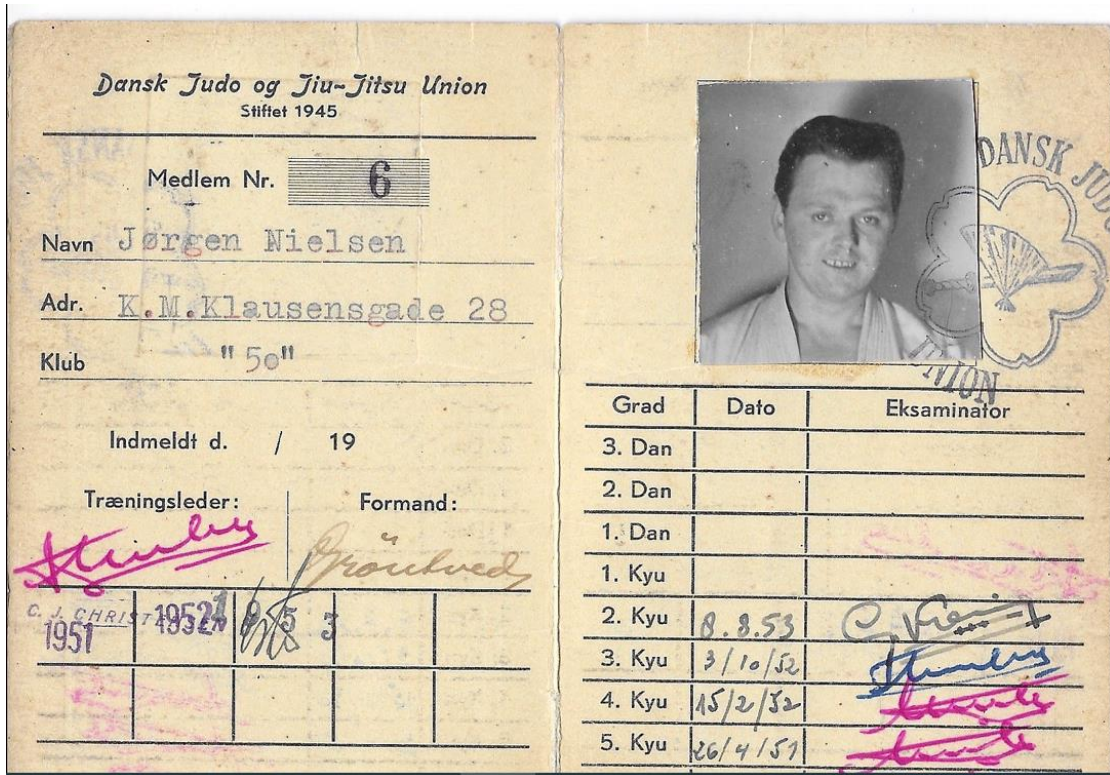 Dansk Judo og Jiu-Jitsu Union
Stiftet 1945
Medlem Nr. 6
Navn Jørgen Nielsen
Adr. K.M.Klausensgade 28
Klub "5o"
Indmeldt d. / 19
Træningsleder: Formand:
C. J. CHRIST
1951 1952 1953
DANSK JUDO
UNION
Grad Dato Eksaminator
3. Dan
2. Dan
1. Dan
1. Kyu
2. Kyu 8.8.53
3. Kyu 3/10/52
4. Kyu 15/2/52
5. Kyu 26/4/51